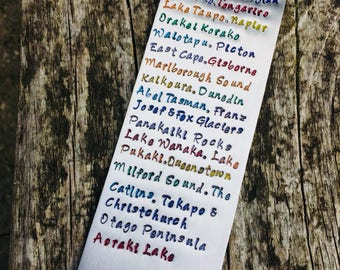 Tongariro
Lake Taupo, Napier
Orakei Korako
Waiotapu, Picton
East Cape, Gisborne
Marlborough Sound
Kaikoura, Dunedin
Abel Tasman, Franz
Josef & Fox Glaciers
Panakaiki Rocks
Lake Wanaka, Lake
Pukaki, Queenstown
Milford Sound, The
Catlins, Tekapo &
Christchurch
Otago Peninsula
Aoraki Lake